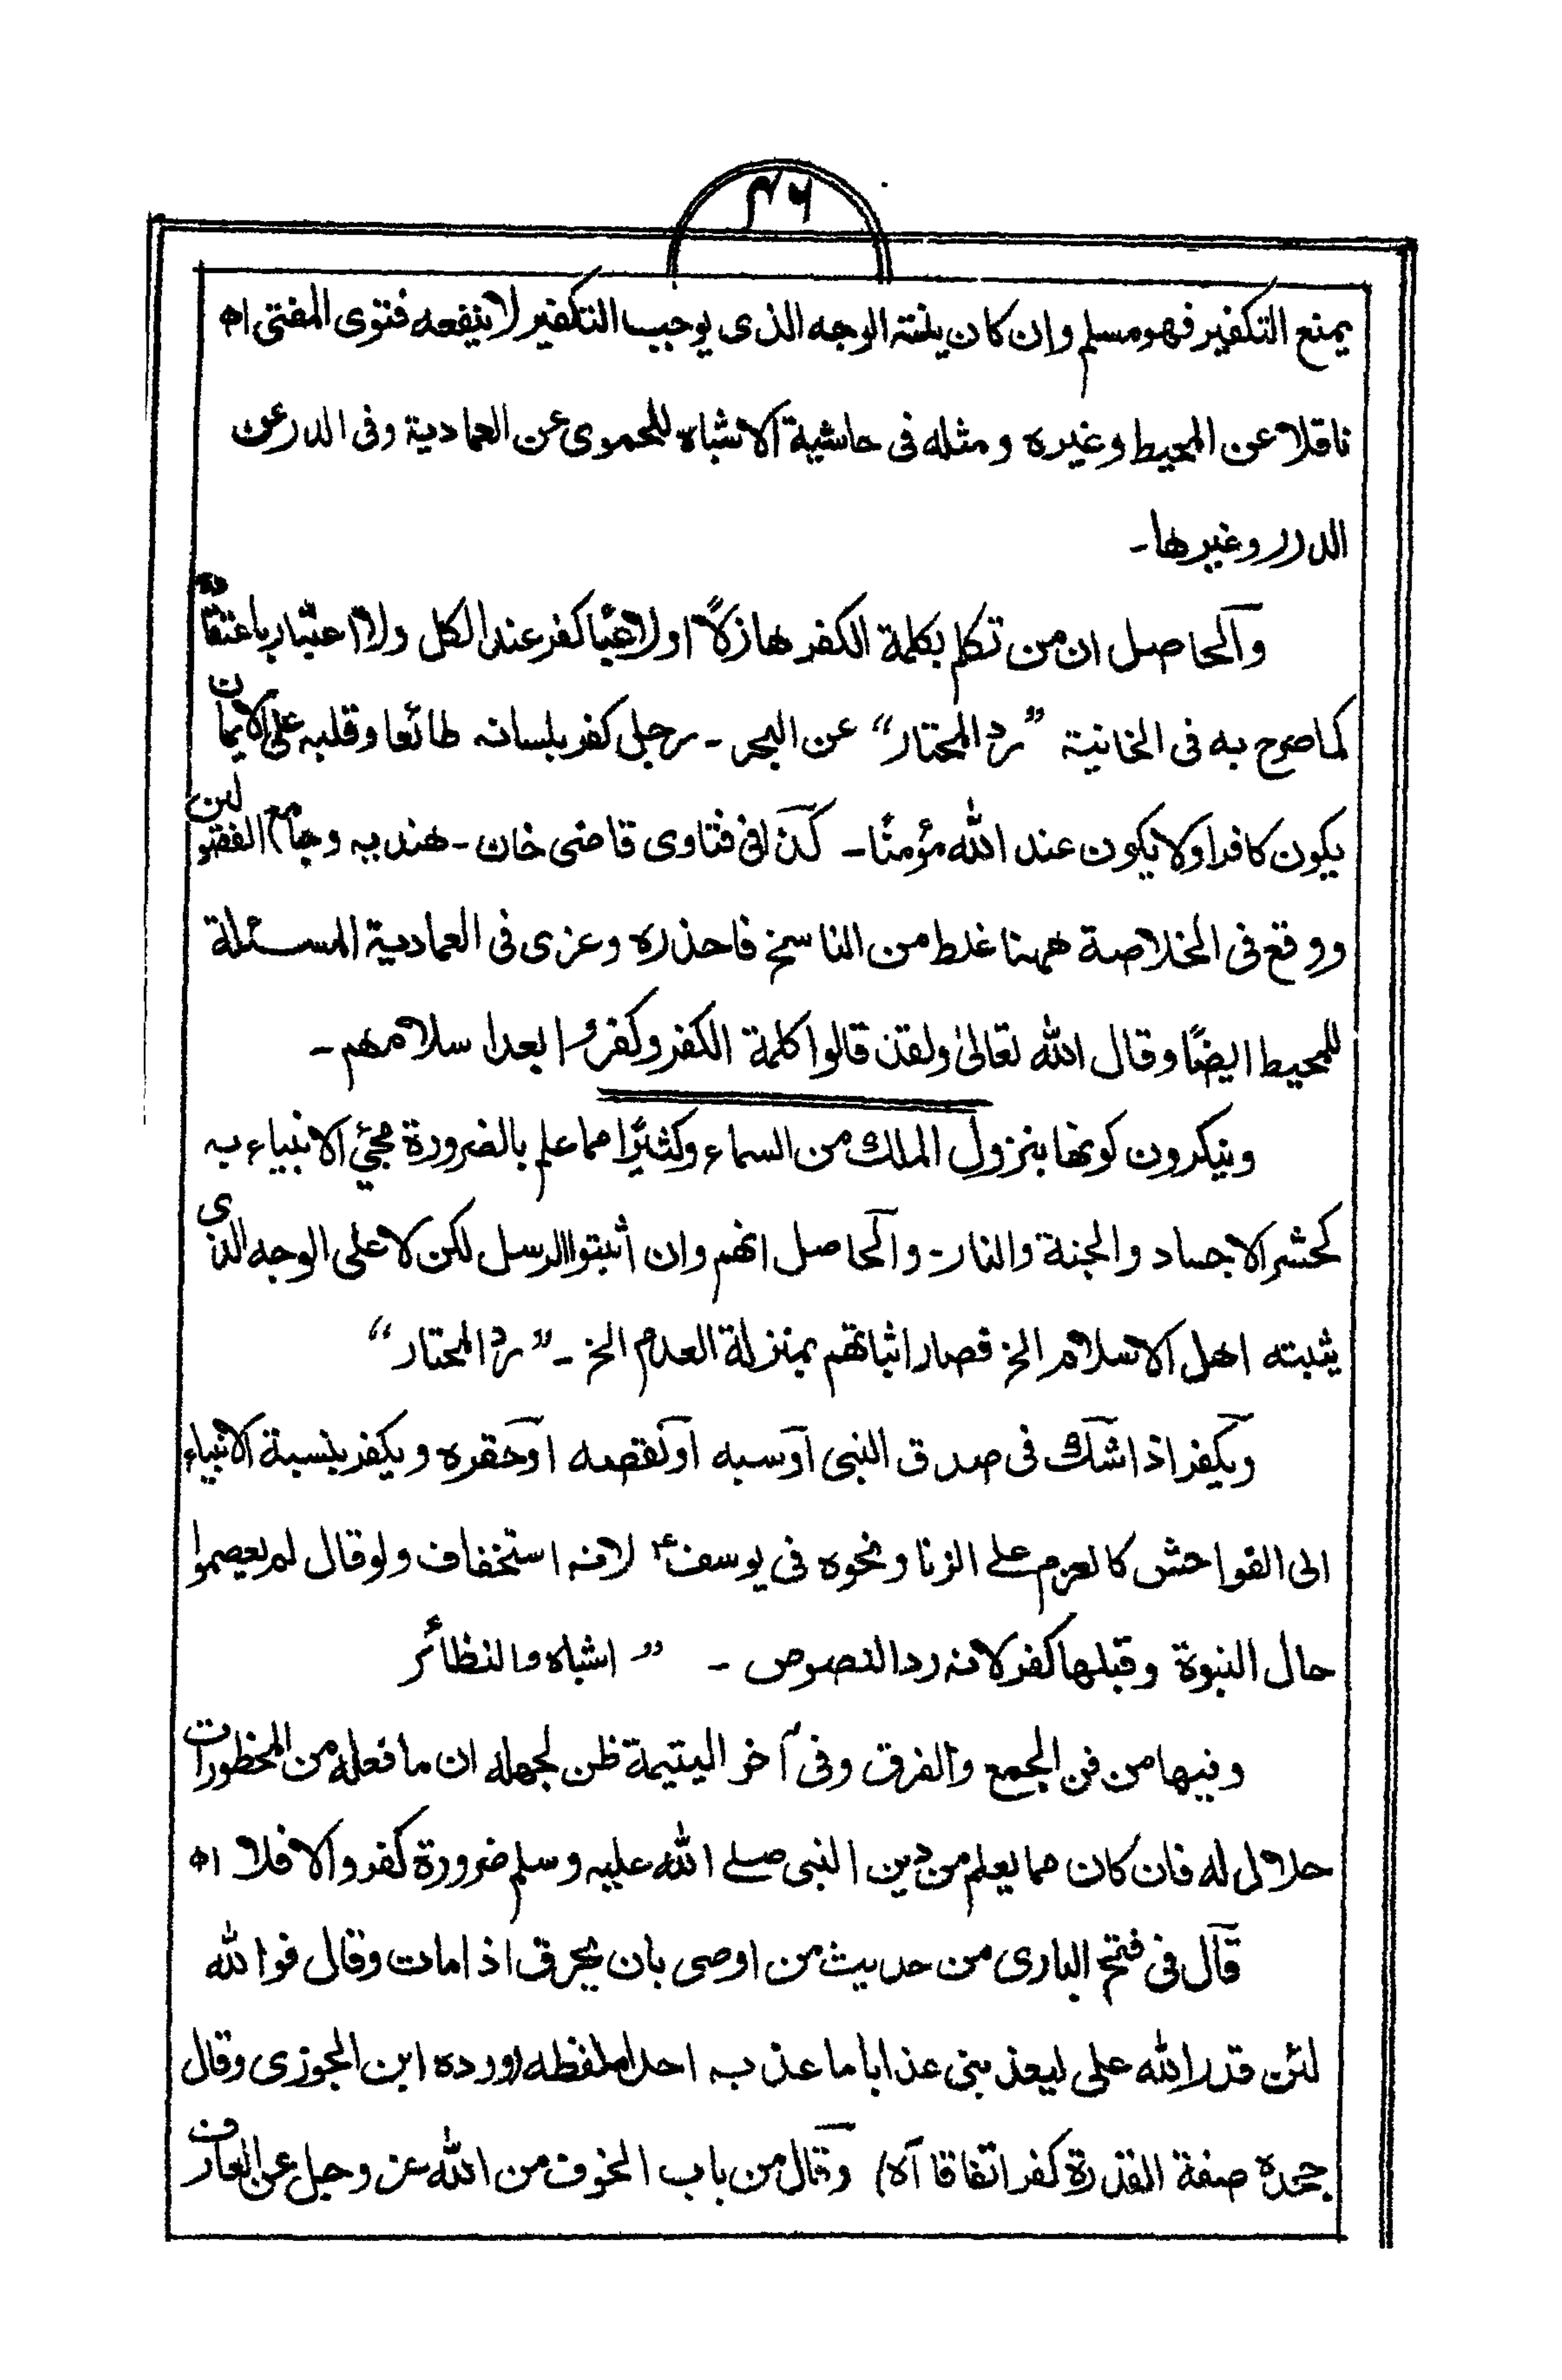 ۴۶
يمنع التكفير فهو مسلم وإن كان نيته الوجه الذى يوجب التكفير لا ينفعه فتوى المفتى اھ
ناقلا عن المحيط وغيره ومثله فى حاشية الاشباه للحموى عن العمادية وفى الدر عن
الدرر وغيرها۔
والحاصل ان من تكلم بكلمة الكفر هازلاً او لاعبًا كفر عند الكل ولا اعتبار باعتقاده
كما صرح به فى الخانية ”رد المحتار“ عن البحر ۔ رجل كفر بلسانه طائعا وقلبه على الايمان
يكون كافرا ولا يكون عند الله مؤمنًا۔ كذا فى فتاوى قاضى خان ۔ هنديه وجامع الفصولين
ووقع فى الخلاصة ههنا غلط من الناسخ فاحذره وعزى فى العمادية المسئلة
للمحيط ايضًا وقال الله تعالىٰ ولقد قالوا كلمة الكفر وكفروا بعد اسلامهم ۔
وينكرون كونها بنزول الملك من السماء وكثيرًا مما علم بالضرورة مجئ الانبياء به
كحشر الاجساد والجنة والنار۔ والحاصل انهم وان أثبتوا الرسل لكن لا على الوجه الذى
يثبته اهل الاسلام الخ فصار اثباتهم بمنزلة العدم الخ ۔ ”رد المحتار“
ويكفر اذا شك فى صدق النبى او سبه او نقصه او حقره ويكفر بنسبة الانبياء
الى الفواحش كالعزم على الزنا ونحوه فى يوسفؑ لانه استخفاف ولو قال لم يعصموا
حال النبوة وقبلها كفر لانه رد النصوص ۔ ” اشباه والنظائر
وفيها من فن الجمع والفرق وفى آخر اليتيمة ظن لجهله ان ما فعله من المحظورات
حلال له فان كان مما يعلم من دين النبى صلے الله عليه وسلم ضرورة كفر والا فلا اھ
قال فى فتح البارى من حديث من اوصى بان يحرق اذا مات وقال فوالله
لئن قدر الله على ليعذبنى عذابا ما عذبه احدا ملفظه (ورده ابن الجوزى وقال
جحده صفة القدرة كفر اتفاقا اه) وقال من باب الخوف من الله عز وجل عن العارف